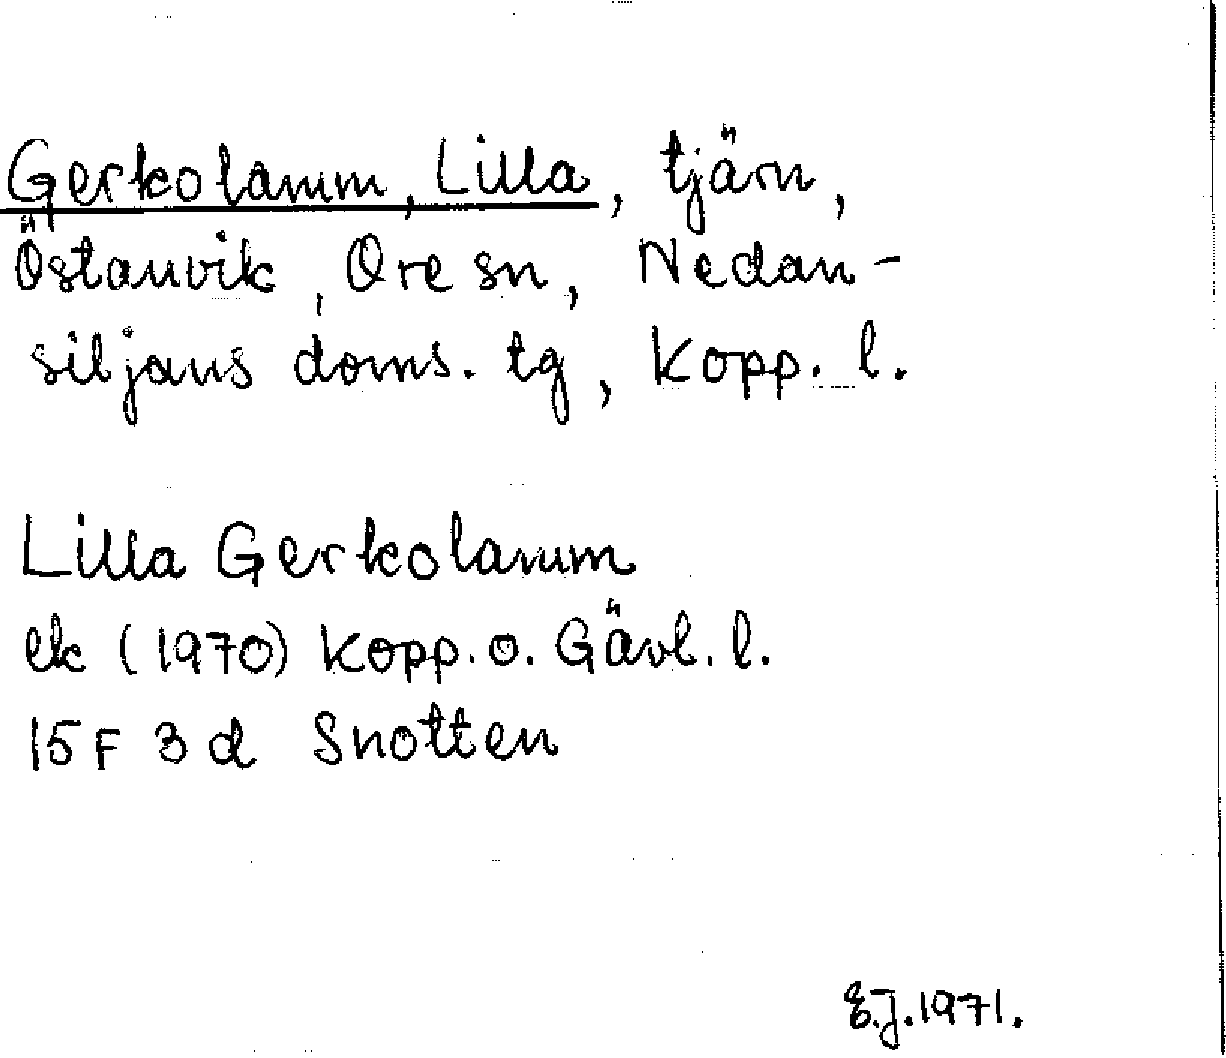 Gerkolamm, Lilla, tjärn,
Östanvik, Ore sn, Nedan-
siljans doms. tg, Kopp. l.
Lilla Gerkolamm
ek (1970) Kopp. o. Gävl. l.
15 F 3 d Snotten
E.J. 1971.